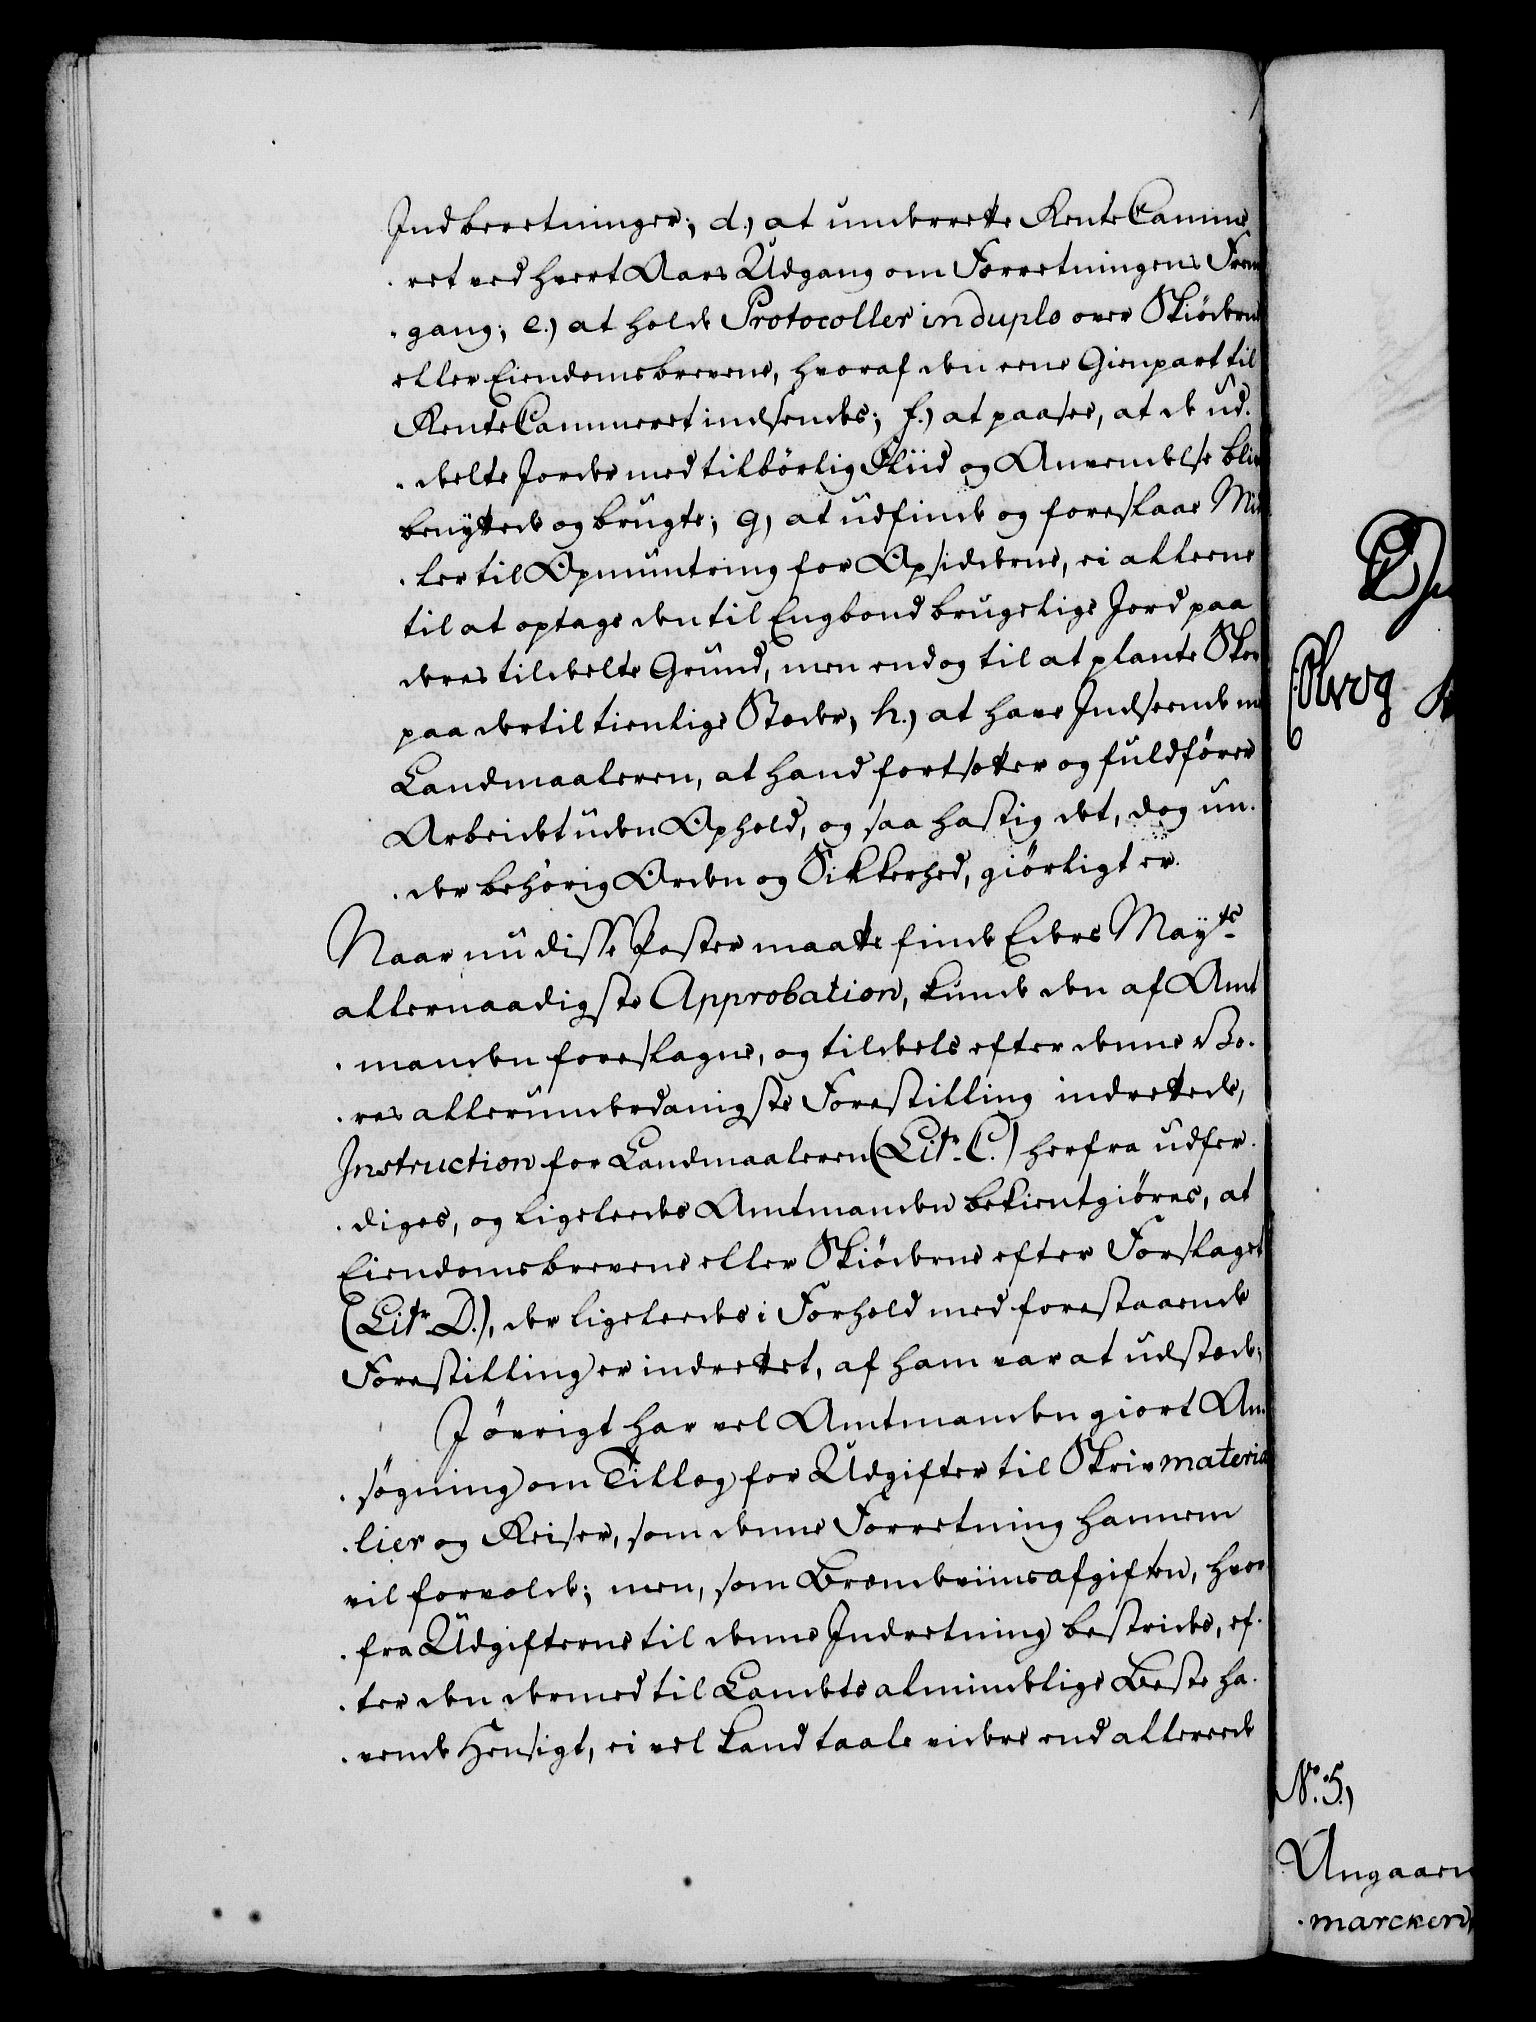 Indberetninger; d.) at underrette RenteCamme
ret ved hvert Aars Udgang om Forretningens Frem
gang; e.) at holde Protocoller in duplo over Skiöderne
eller Eiendomsbrevene, hvoraf den eene Gienpart til
RenteCammeret indsendes; f.) at paasee, at de ud.
deelte Jorder med tilbörlig Fliid og Anvendelse bliv
benyttede og brugte; g) at udfinde og foreslaae Mid
ler til Opmuntring for Opsidderne, ei alleene
til at optage den til Engbond brugelige Jord paa
deres tildeelte Grund, men endog til at plante Skov
paa dertil tienlige Stæder, h.) at have Indseende m
Landmaaleren, at hand fortsætter og fuldförer
Arbeidet uden Ophold, og saa hastig det, dog un.
der behörig Orden og Sikkerhed, giörligt er.
Naar nu disse Poster maatte finde Eders Mayts
allernaadigste Approbation, kunde den af Amt
manden foreslagne, og tildeels efter denne Vo.
res allerunderdanigste Forestilling indrettede,
Instruction for Landmaaleren (Litr. C.) herfra udfer.
diges, og ligeleedes Amtmanden bekientgiöres, at
Eiendomsbrevene eller Skiöderne efter Forslaget
(Litr. D.), der ligeleedes i Forhold med forestaaende
Forestilling er indrettet, af ham var at udstæde;
I övrigt har vel Amtmanden giort An.
søgning om Tillæg for Udgifter til Skrivmateria
lier og Reiser, som denne Forretning hannem
vil forvolde; men, som Brændeviinsafgiften, hvor
fra Udgifterne til denne Indretning bestrides, ef.
ter den dermed til Landets almindelige Beste ha.
vende Hensigt, ei vel kand taale videre end allereede
No. 5.)
Angaaen
marcken